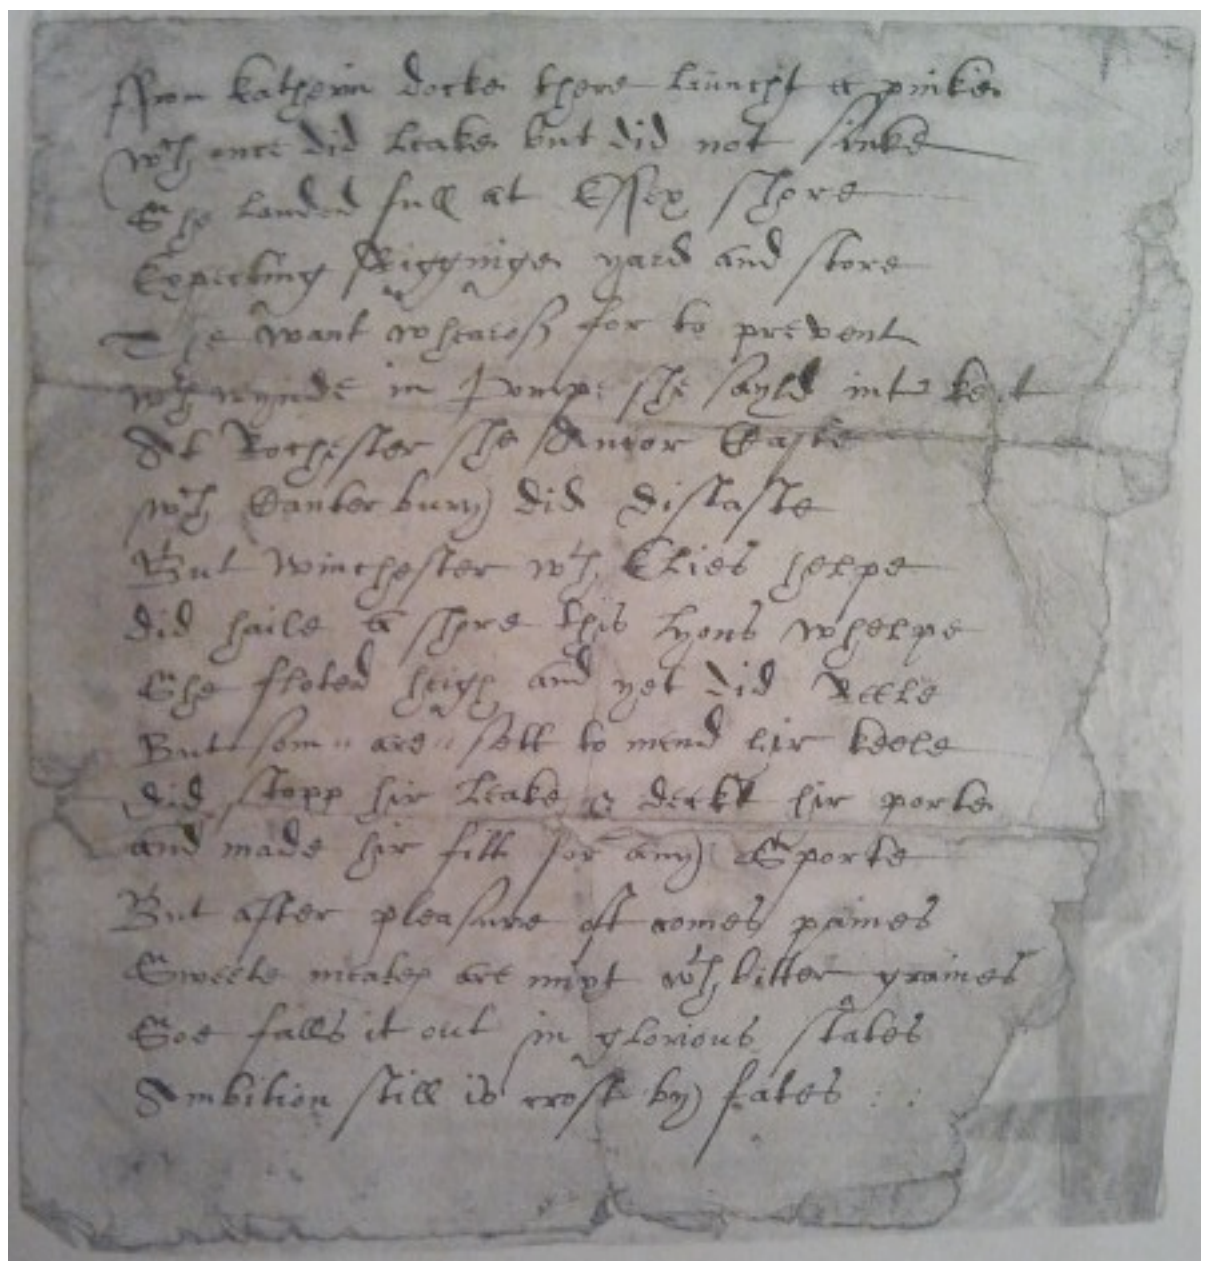 ffrom Katherin docke there launcht a pinke
wch once did leake but did not sinke
She landed full at Essex shore
Expecting Rigginge yard and store
The want whearof for to prevent
wth wynde in Poope she sayld into Kent
At Rochester she Ancor Caste
wch Canterbury did distaste
But winchester wth Elies helpe
did haile a shore this Lyons whelpe
She floted heigh and yet did Reele
But som are sett to mend hir keele
did stopp hir leake & deckt hir porte
and made hir fitt for any Sporte
But after pleasure oft comes paines
Sweete meates are mixt wth bitter graines
Soe falls it out in glorious states
Ambition still is crost by fates : :